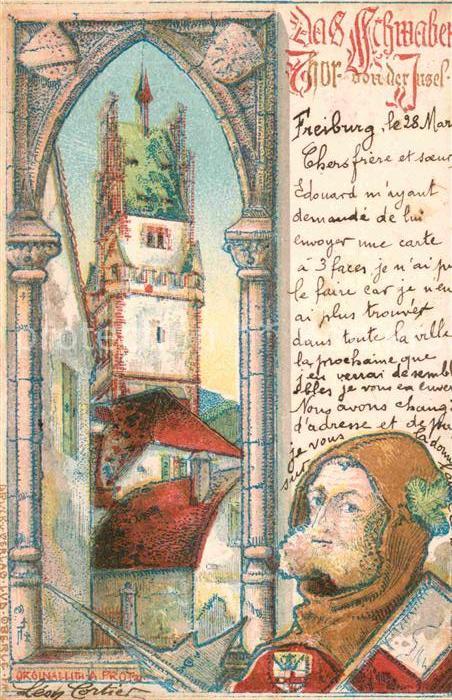 Das Schwaben
Thor von der Insel
Freiburg, le 28 Mar
Chers frère et sœur
Edouard m'ayant
demandé de lui
envoyer une carte
a 3 faces je n'ai p
le faire car je n'en
ai plus trouvér
dans toute la ville
la prochaine que
j'en verrai de sembl
ables je vous en enver
Nous avons chang
d'adresse et de plu
je vous
ORGINALLITH. A. PROT
Leon Cortier